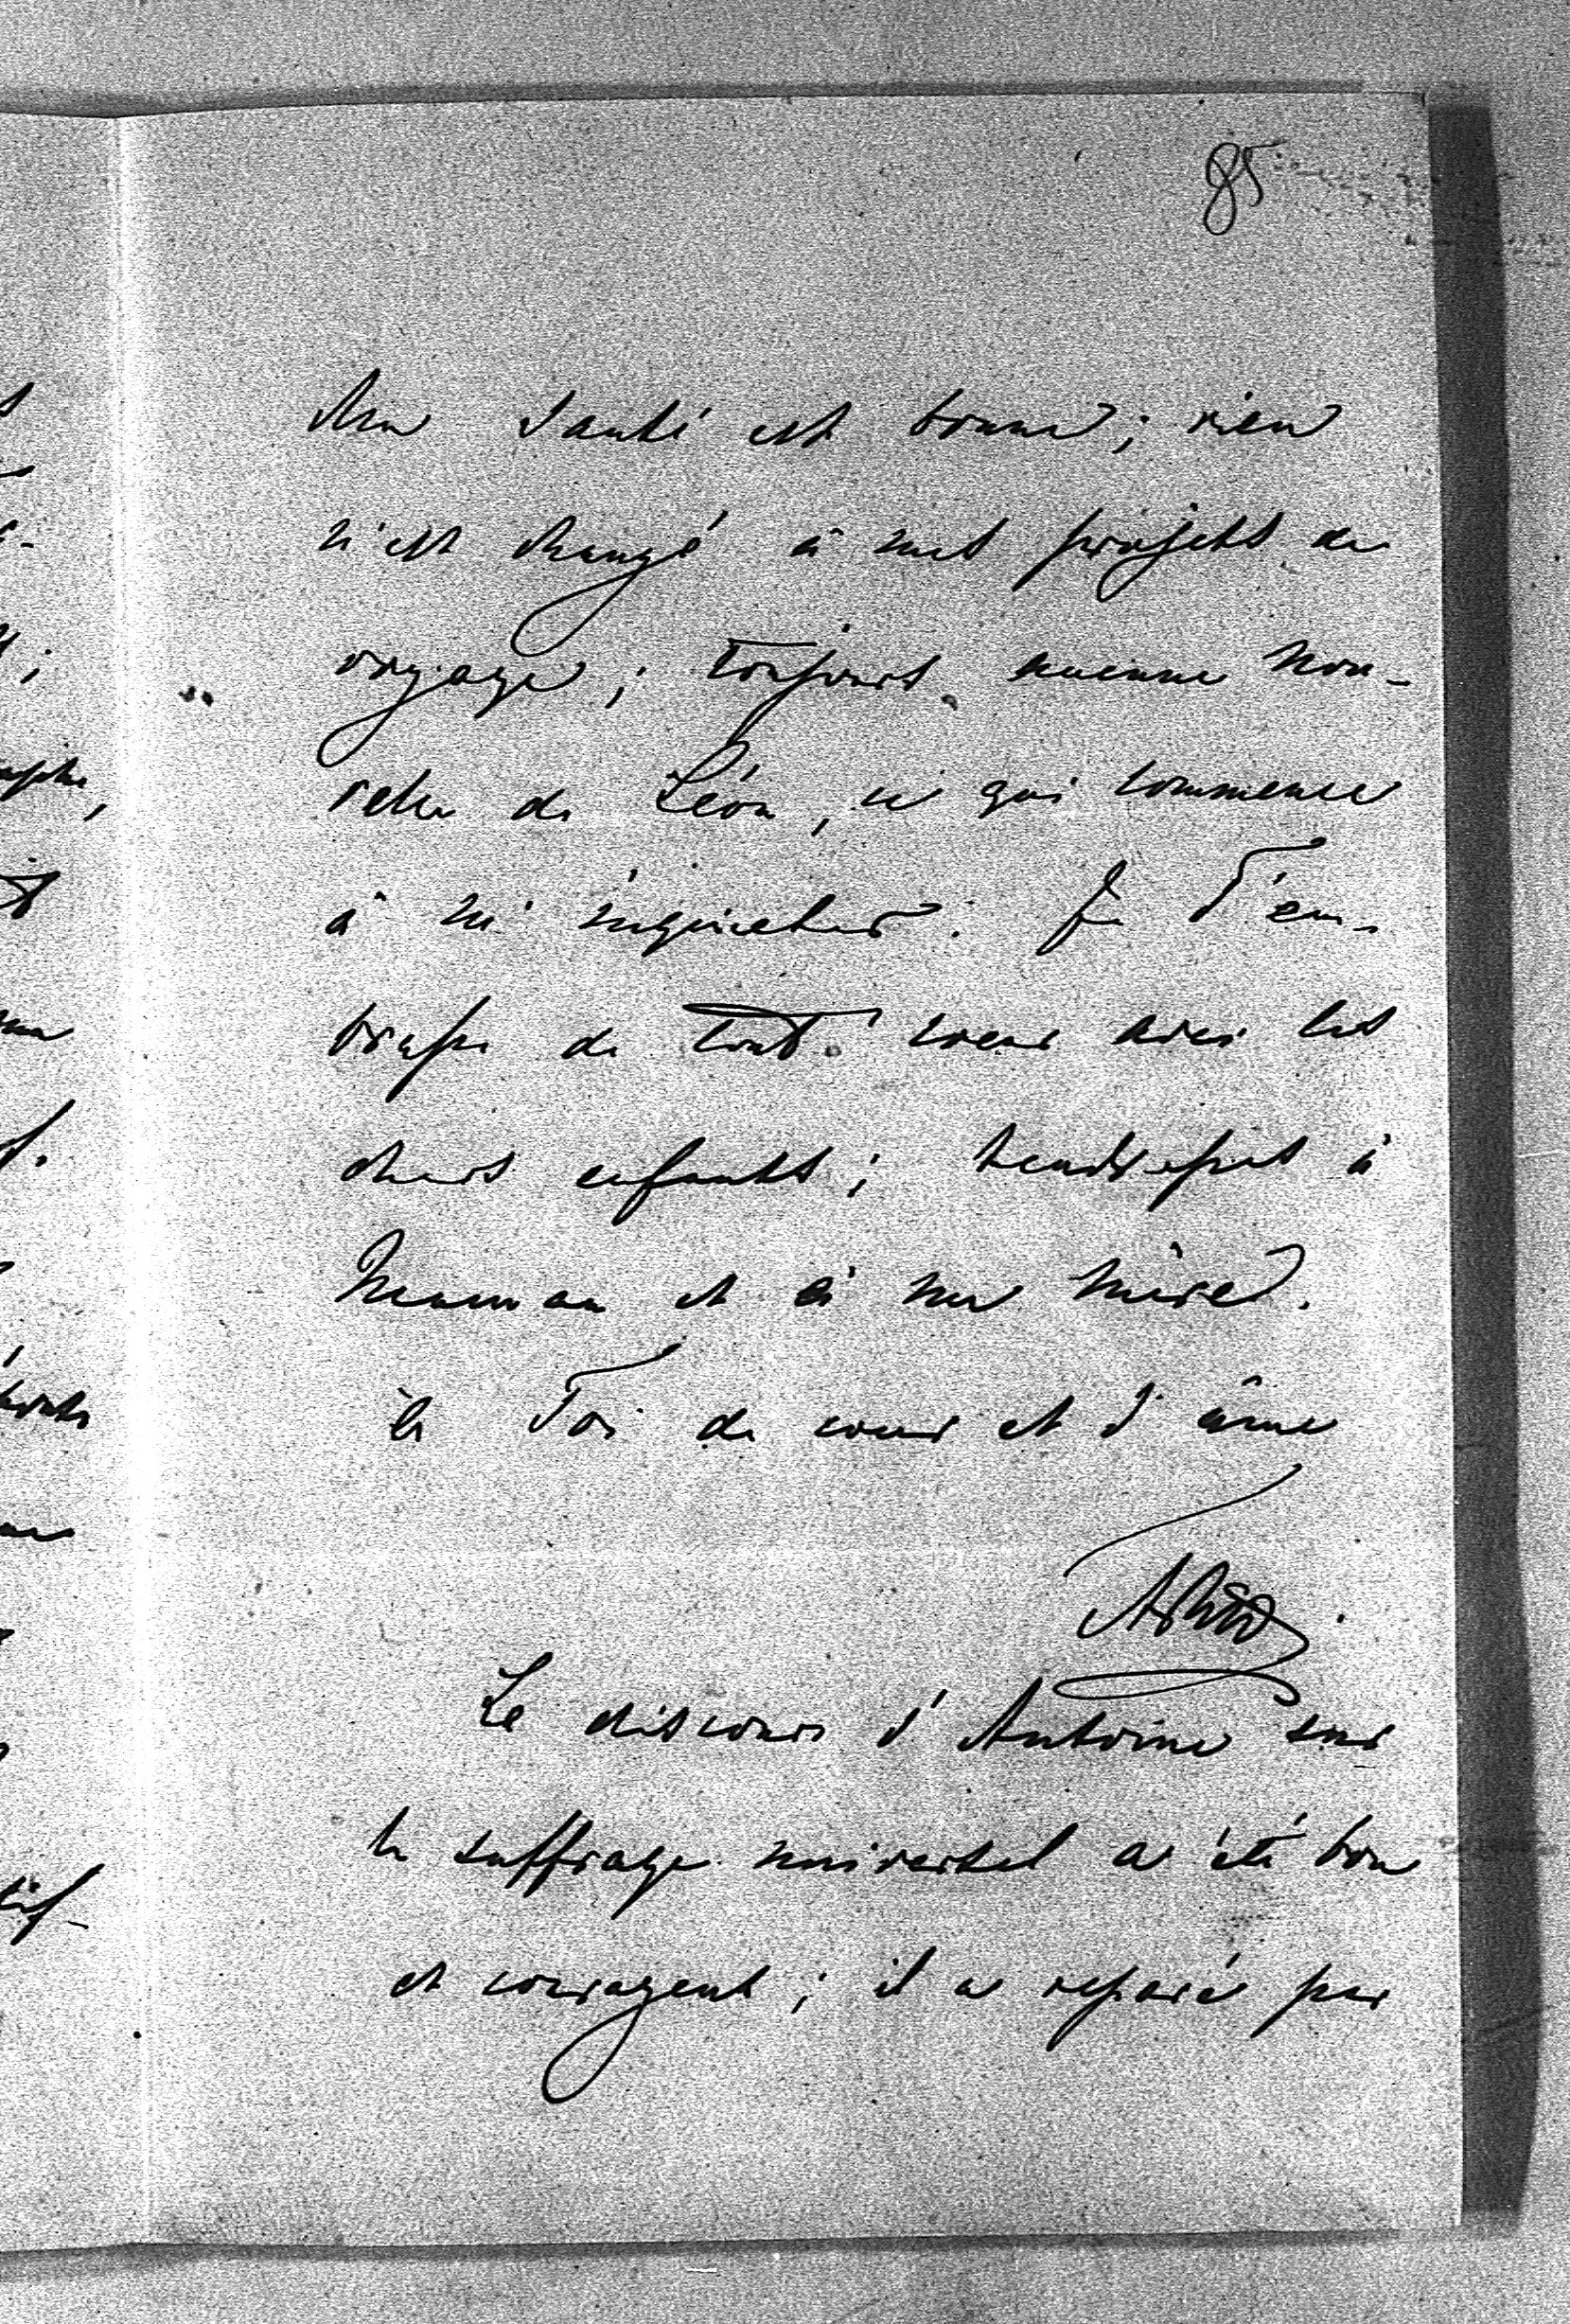 85
Ma santé est bonne ; rien
n'est changé à mes projets de
voyage ; toujours aucune nou-
velle de Léon, ce qui commence
à m'inquieter. Je T'em-
brasse de tout coeur avec les
chers enfants ; tendresses à
Maman et à ma mère.
à Toi de coeur et d'âme
Le discours d'Antoine sur
le suffrage universel a été bon
et courageux ; il a réparé par